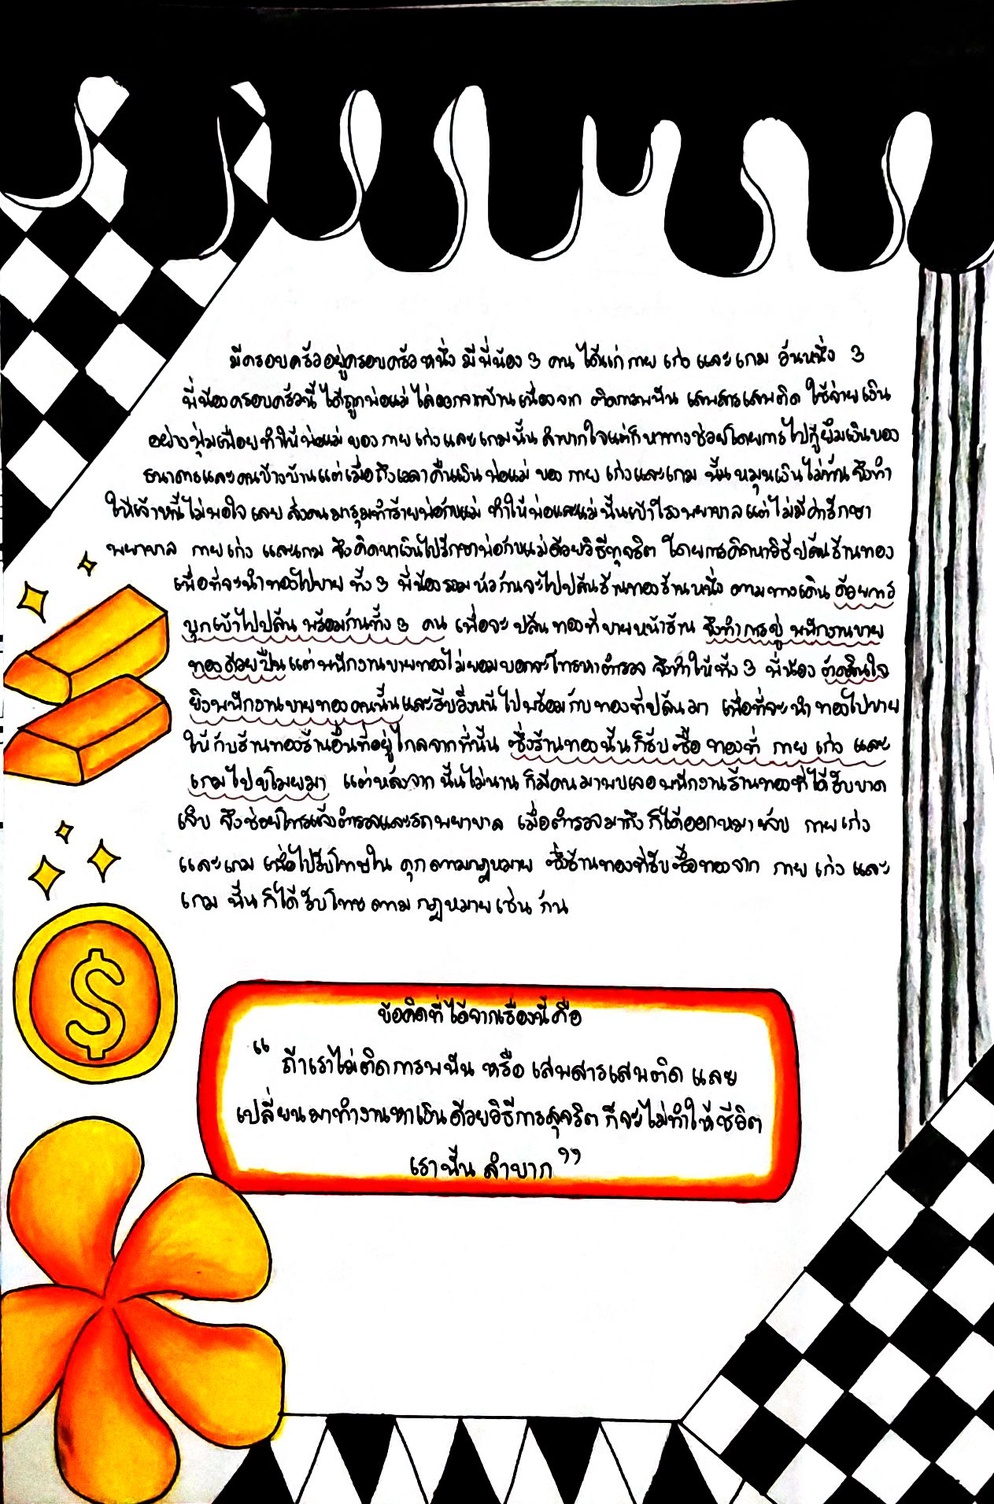 มีครอบครัวอยู่ครอบครัวหนึ่ง มีพี่น้อง 3 คน ได้แก่ กาย เก่ง และ เกม วันหนึ่ง 3
พี่น้องครอบครัวนี้ ได้ถูกพ่อแม่ ไล่ออกจากบ้าน เนื่องจาก ติดการพนัน เสพสารเสพติด ใช้จ่ายเงิน
อย่างฟุ่มเฟือย ทำให้พ่อแม่ ของ กาย เก่ง และ เกมนั้น ลำบากใจแต่ก็หาทางช่วยโดยการไปกู้ยืมเงินของ
ธนาคารและคนข้างบ้าน แต่เมื่อถึงเวลาคืนเงิน พ่อแม่ ของ กาย เก่ง และ เกม นั้น หมุนเงินไม่ทัน จึงทำ
ให้เจ้าหนี้ไม่พอใจ เลย ส่งคนมารุมทำร้ายพ่อกับแม่ ทำให้พ่อและแม่นั้นเข้าโรงพยาบาล แต่ไม่มีค่ารักษา
พยาบาล กาย เก่ง และเกม จึงคิดหาเงินไปรักษาพ่อกับแม่ด้วยวิธีทุจริต โดยการคิดหาวิธีปล้นร้านทอง
เพื่อที่จะนำทองไปขาย ทั้ง 3 พี่น้องรวมหัวกันจะไปปล้นร้านทองร้านหนึ่ง ตามทางเดิน ด้วยการ
บุกเข้าไปปล้น พร้อมกันทั้ง 3 คน เพื่อจะ ปล้นทองที่ขายหน้าร้าน จึงทำการขู่ พนักงานขาย
ทองด้วยปืน แต่พนักงานขายทองไม่ยอมบอกจะโทรหาตำรวจ จึงทำให้ทั้ง 3 พี่น้อง ตัดสินใจ
ยิงพนักงานขายทองคนนั้นและรีบวิ่งหนีไปพร้อมกับทองที่ปล้นมา เพื่อที่จะนำทองไปขาย
ให้กับร้านทองร้านอื่นที่อยู่ไกลจากที่นั้น ซึ่งร้านทองนั้นก็รับซื้อ ทองที่ กาย เก่ง และ
เกมไปขโมยมา แต่หลังจากนั้นไม่นาน ก็มีคนมาพบเจอพนักงานร้านทองที่ได้รับบาด
เจ็บ จึงช่วยโทรแจ้งตำรวจและรถพยาบาล เมื่อตำรวจมาถึงก็ได้ออกหมายจับ กาย เก่ง
และเกม เพื่อไปรับโทษใน คุก ตามกฎหมาย ซึ่งร้านทองที่รับซื้อทองจาก กาย เก่ง และ
เกม นั้นก็ได้รับโทษ ตาม กฎหมายเช่นกัน
ข้อคิดที่ได้จากเรื่องนี้ คือ
“ ถ้าเราไม่ติดการพนัน หรือ เสพสารเสพติด และ
เปลี่ยนมาทำงานหาเงินด้วยวิธีการสุจริต ก็จะไม่ทำให้ชีวิต
เรานั้น ลำบาก ”